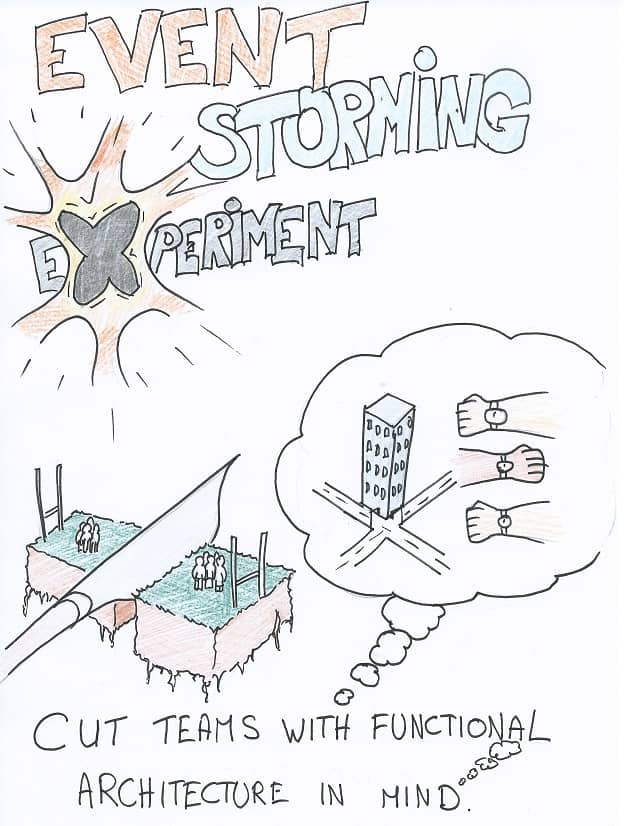 EVENT
STORMING
EXPERIMENT
CUT TEAMS WITH FUNCTIONAL
ARCHITECTURE IN MIND.